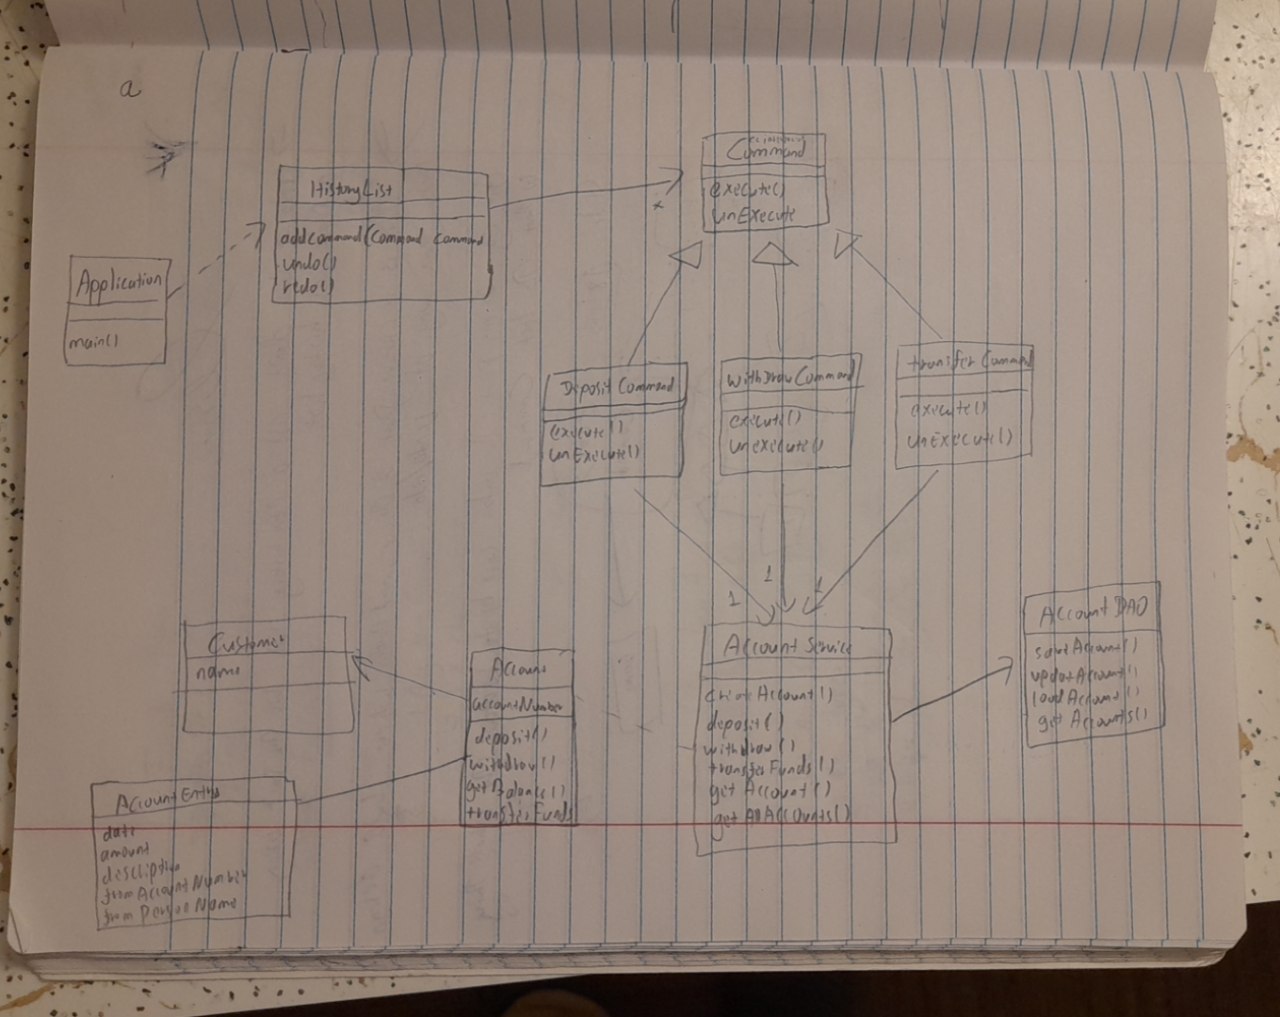 a
Command
execute()
unExecute
HistoryList
addCommand(Command command
undo()
redo()
*
Application
main()
Deposit Command
execute()
unExecute()
WithDraw Command
execute()
unexecute()
transfer Command
execute()
unExecute()
1
1
1
Customer
name
Account
accountNumber
deposit()
withdraw()
getBalance()
transferFunds
Account Service
createAccount()
deposit()
withdraw()
transferFunds()
get Account()
get AllAccounts()
Account DAO
saveAccount()
updateAccount()
loadAccount()
get Accounts()
Account Entry
date
amount
description
from Account Number
from Person Name